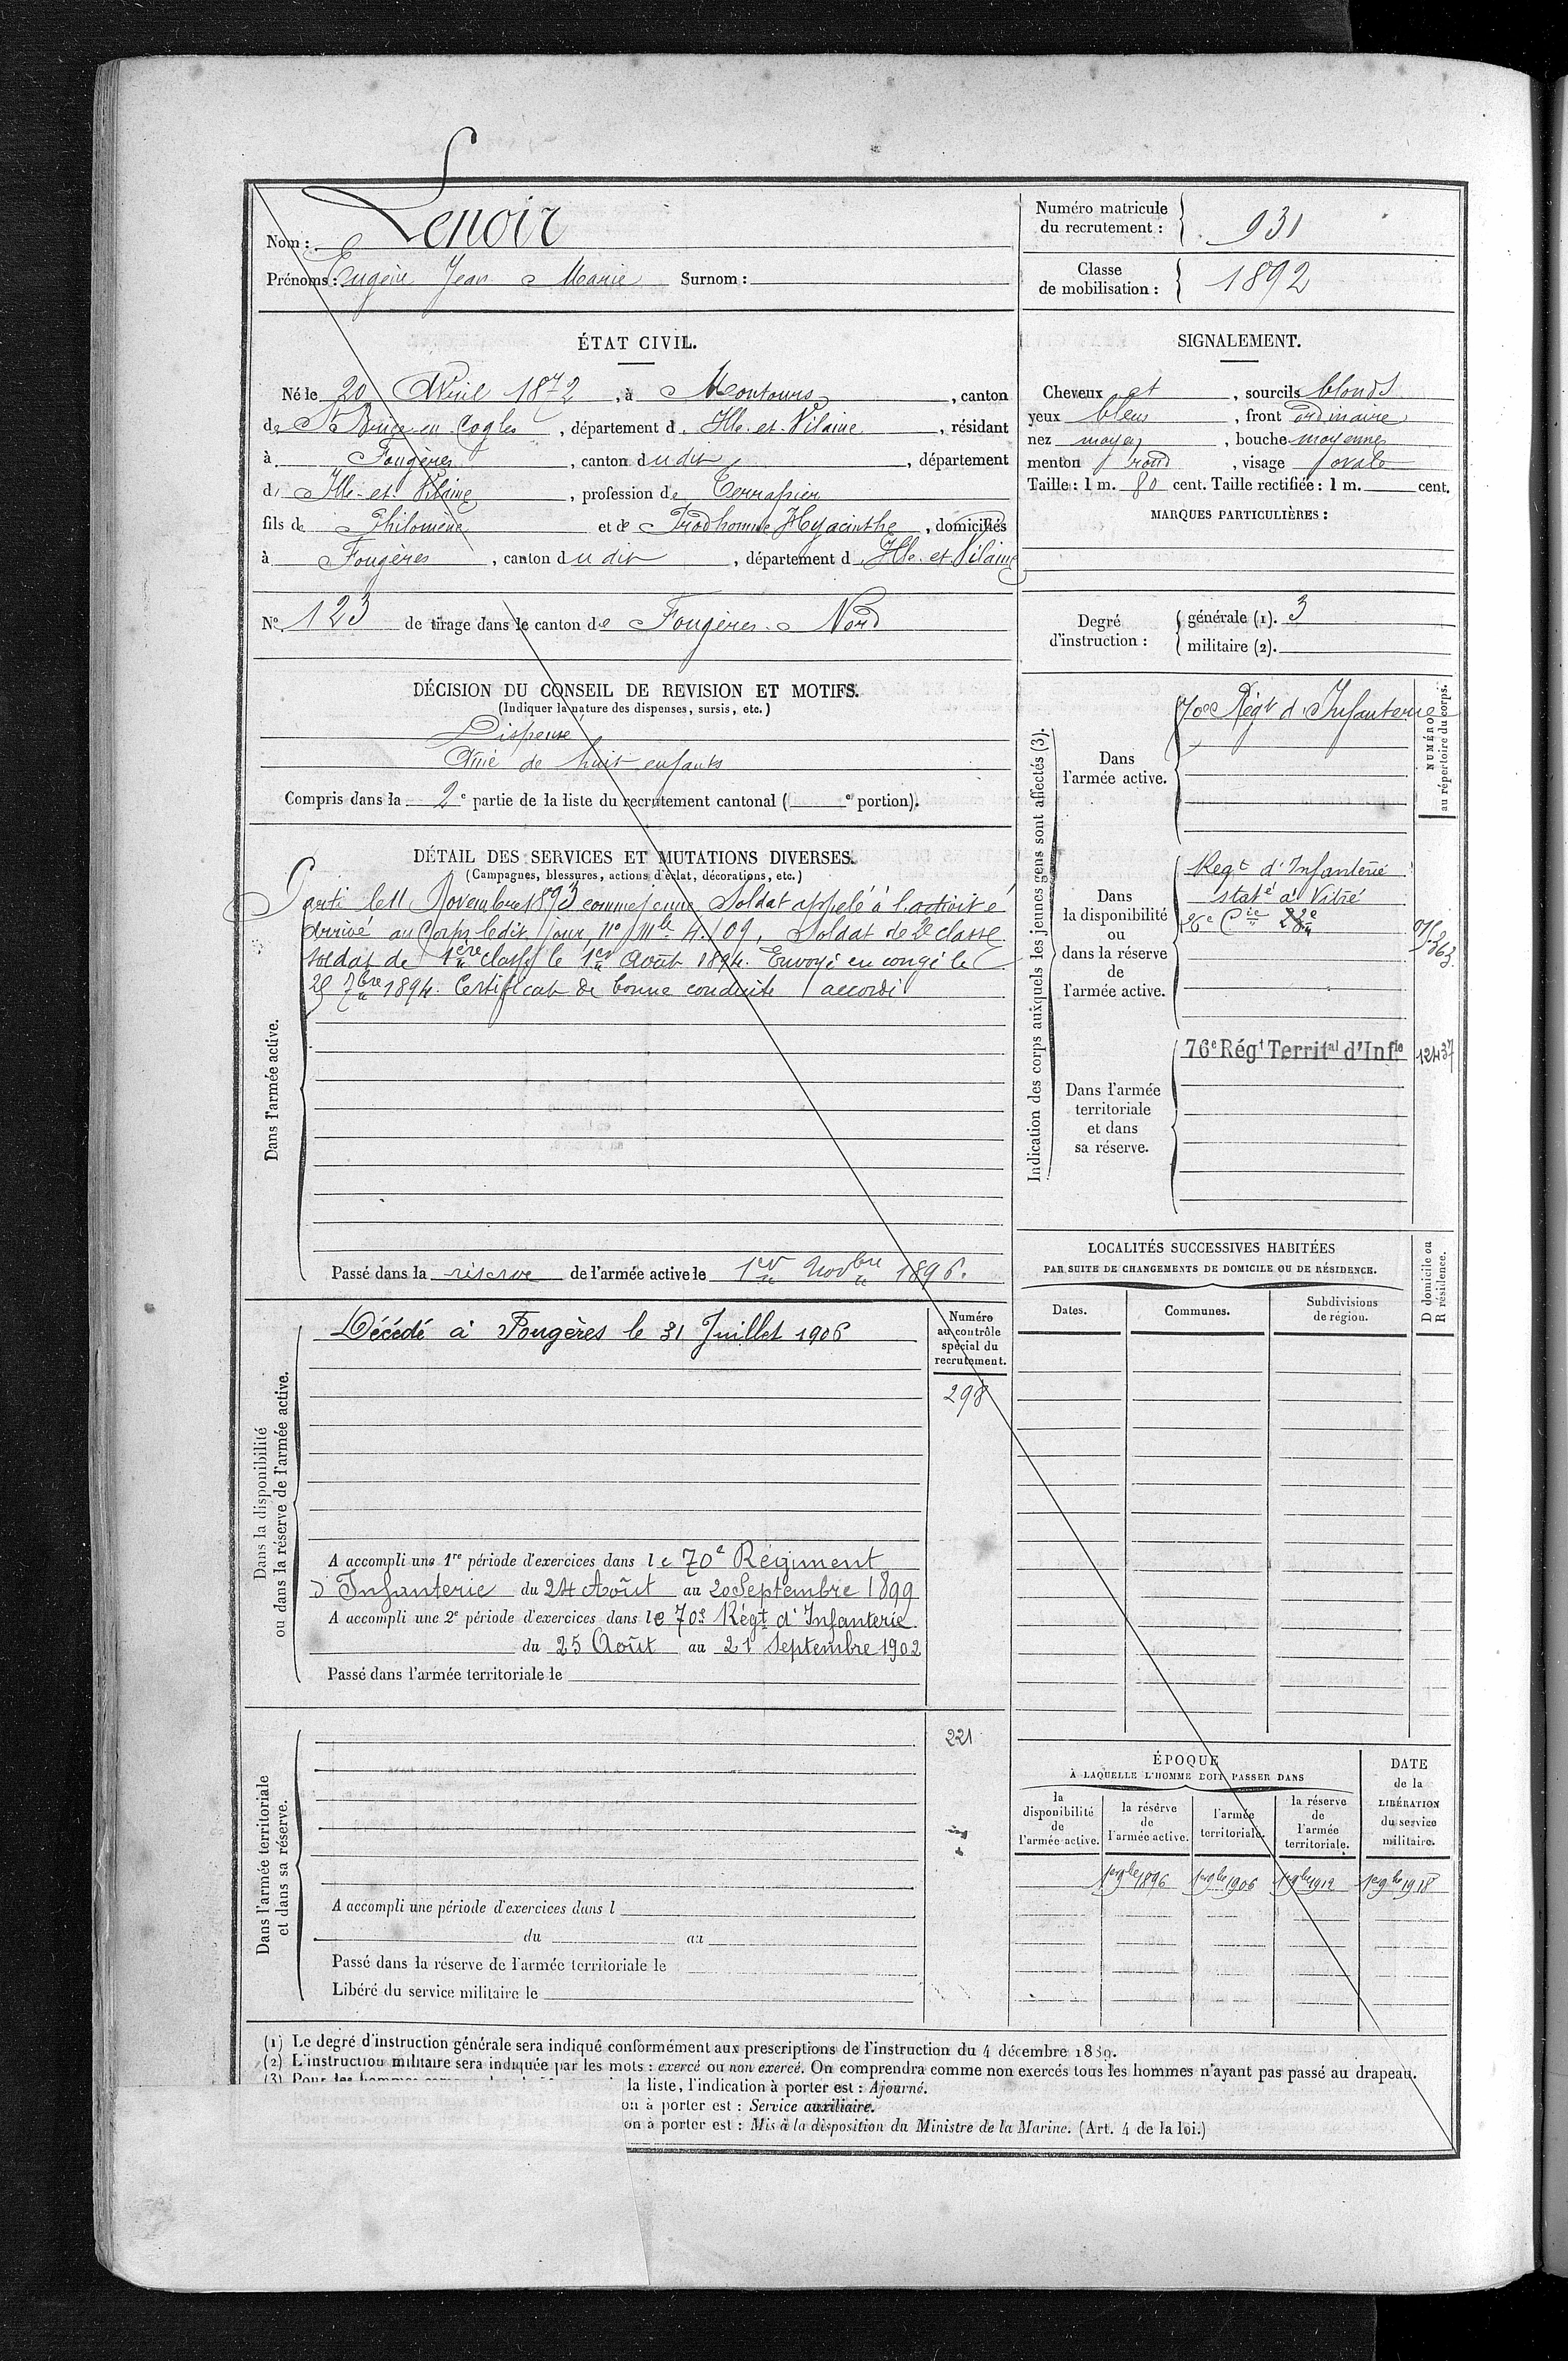 Nom : Lenoir
Prénoms : Eugène Jean Marie Surnom :
Numéro matricule du recrutement : 931
Classe de mobilisation : 1892
ÉTAT CIVIL.
Né le 20 Avril 1872, à Montours, canton
de St Brice-en-Cogles, département d'Ille-et-Vilaine, résidant
à Fougères, canton dudit, département
d'Ille-et-Vilaine, profession de Terrassier
fils de Philomène et de Prodhomme Hyacinthe, domiciliés
à Fougères, canton dudit, département d'Ille-et-Vilaine
No 123 de tirage dans le canton de Fougères Nord
SIGNALEMENT.
Cheveux et, sourcils blonds
yeux bleus, front ordinaire
nez moyen, bouche moyenne
menton rond, visage ovale
Taille : 1 m. 80 cent. Taille rectifiée : 1 m. cent.
MARQUES PARTICULIÈRES :
Degré d'instruction : générale (1). 3
militaire (2).
DÉCISION DU CONSEIL DE REVISION ET MOTIFS.
(Indiquer la nature des dispenses, sursis, etc.)
Dispensé
Ainé de huit enfants
Compris dans la 2e partie de la liste du recrutement cantonal ( e portion).
DÉTAIL DES SERVICES ET MUTATIONS DIVERSES.
(Campagnes, blessures, actions d'éclat, décorations, etc.)
Dans l'armée active.
Parti le 11 Novembre 1893 comme jeune Soldat appelé à l'activité
Arrivé au Corps ledit jour, no Mle 4.109, Soldat de 2e classe
soldat de 1ère classe le 1er Août 1894. Envoyé en congé le
7bre 1894. Certificat de bonne conduite accordé
Passé dans la réserve de l'armée active le 1er Novbre 1896.
Dans la disponibilité
ou dans la réserve de l'armée active.
Décédé à Fougères le 31 Juillet 1906
Numéro
au contrôle
spécial du
recrutement.
298
A accompli une 1re période d'exercices dans le 70e Régiment
d'Infanterie du 24 Août au 20 Septembre 1899
A accompli une 2e période d'exercices dans le 70e Régt d'Infanterie
du 25 Août au 21 Septembre 1902
Passé dans l'armée territoriale le
Dans l'armée territoriale
et dans sa réserve.
221
A accompli une période d'exercices dans l
du au
Passé dans la réserve de l'armée territoriale le
Libéré du service militaire le
Indication des corps auxquels les jeunes gens sont affectés (3).
NUMÉRO
au répertoire du corps.
Dans
l'armée active.
70e Régt d'Infanterie
Dans
la disponibilité
ou
dans la réserve
de
l'armée active.
Regt d'Infanterie
staté à Vitré
Dans l'armée
territoriale
et dans
sa réserve.
76e Régt Territal d'Infie
12437
LOCALITÉS SUCCESSIVES HABITÉES
PAR SUITE DE CHANGEMENTS DE DOMICILE OU DE RÉSIDENCE.
D domicile ou
R résidence.
Dates.
Communes.
Subdivisions
de région.
ÉPOQUE
À LAQUELLE L'HOMME DOIT PASSER DANS
DATE
de la
LIBÉRATION
du service
militaire.
la
disponibilité
de
l'armée active.
la réserve
de
l'armée active.
l'armée
territoriale.
la réserve
de
l'armée
territoriale.
1er 9bre 1896
1er 9bre 1906
1er 9bre 1912
1er 9bre 1918
(1) Le degré d'instruction générale sera indiqué conformément aux prescriptions de l'instruction du 4 décembre 1889.
(2) L'instruction militaire sera indiquée par les mots : exercé ou non exercé. On comprendra comme non exercés tous les hommes n'ayant pas passé au drapeau.
(3) Pour les hommes
la liste, l'indication à porter est : Ajourné.
on à porter est : Service auxiliaire.
on à porter est : Mis à la disposition du Ministre de la Marine. (Art. 4 de la loi.)